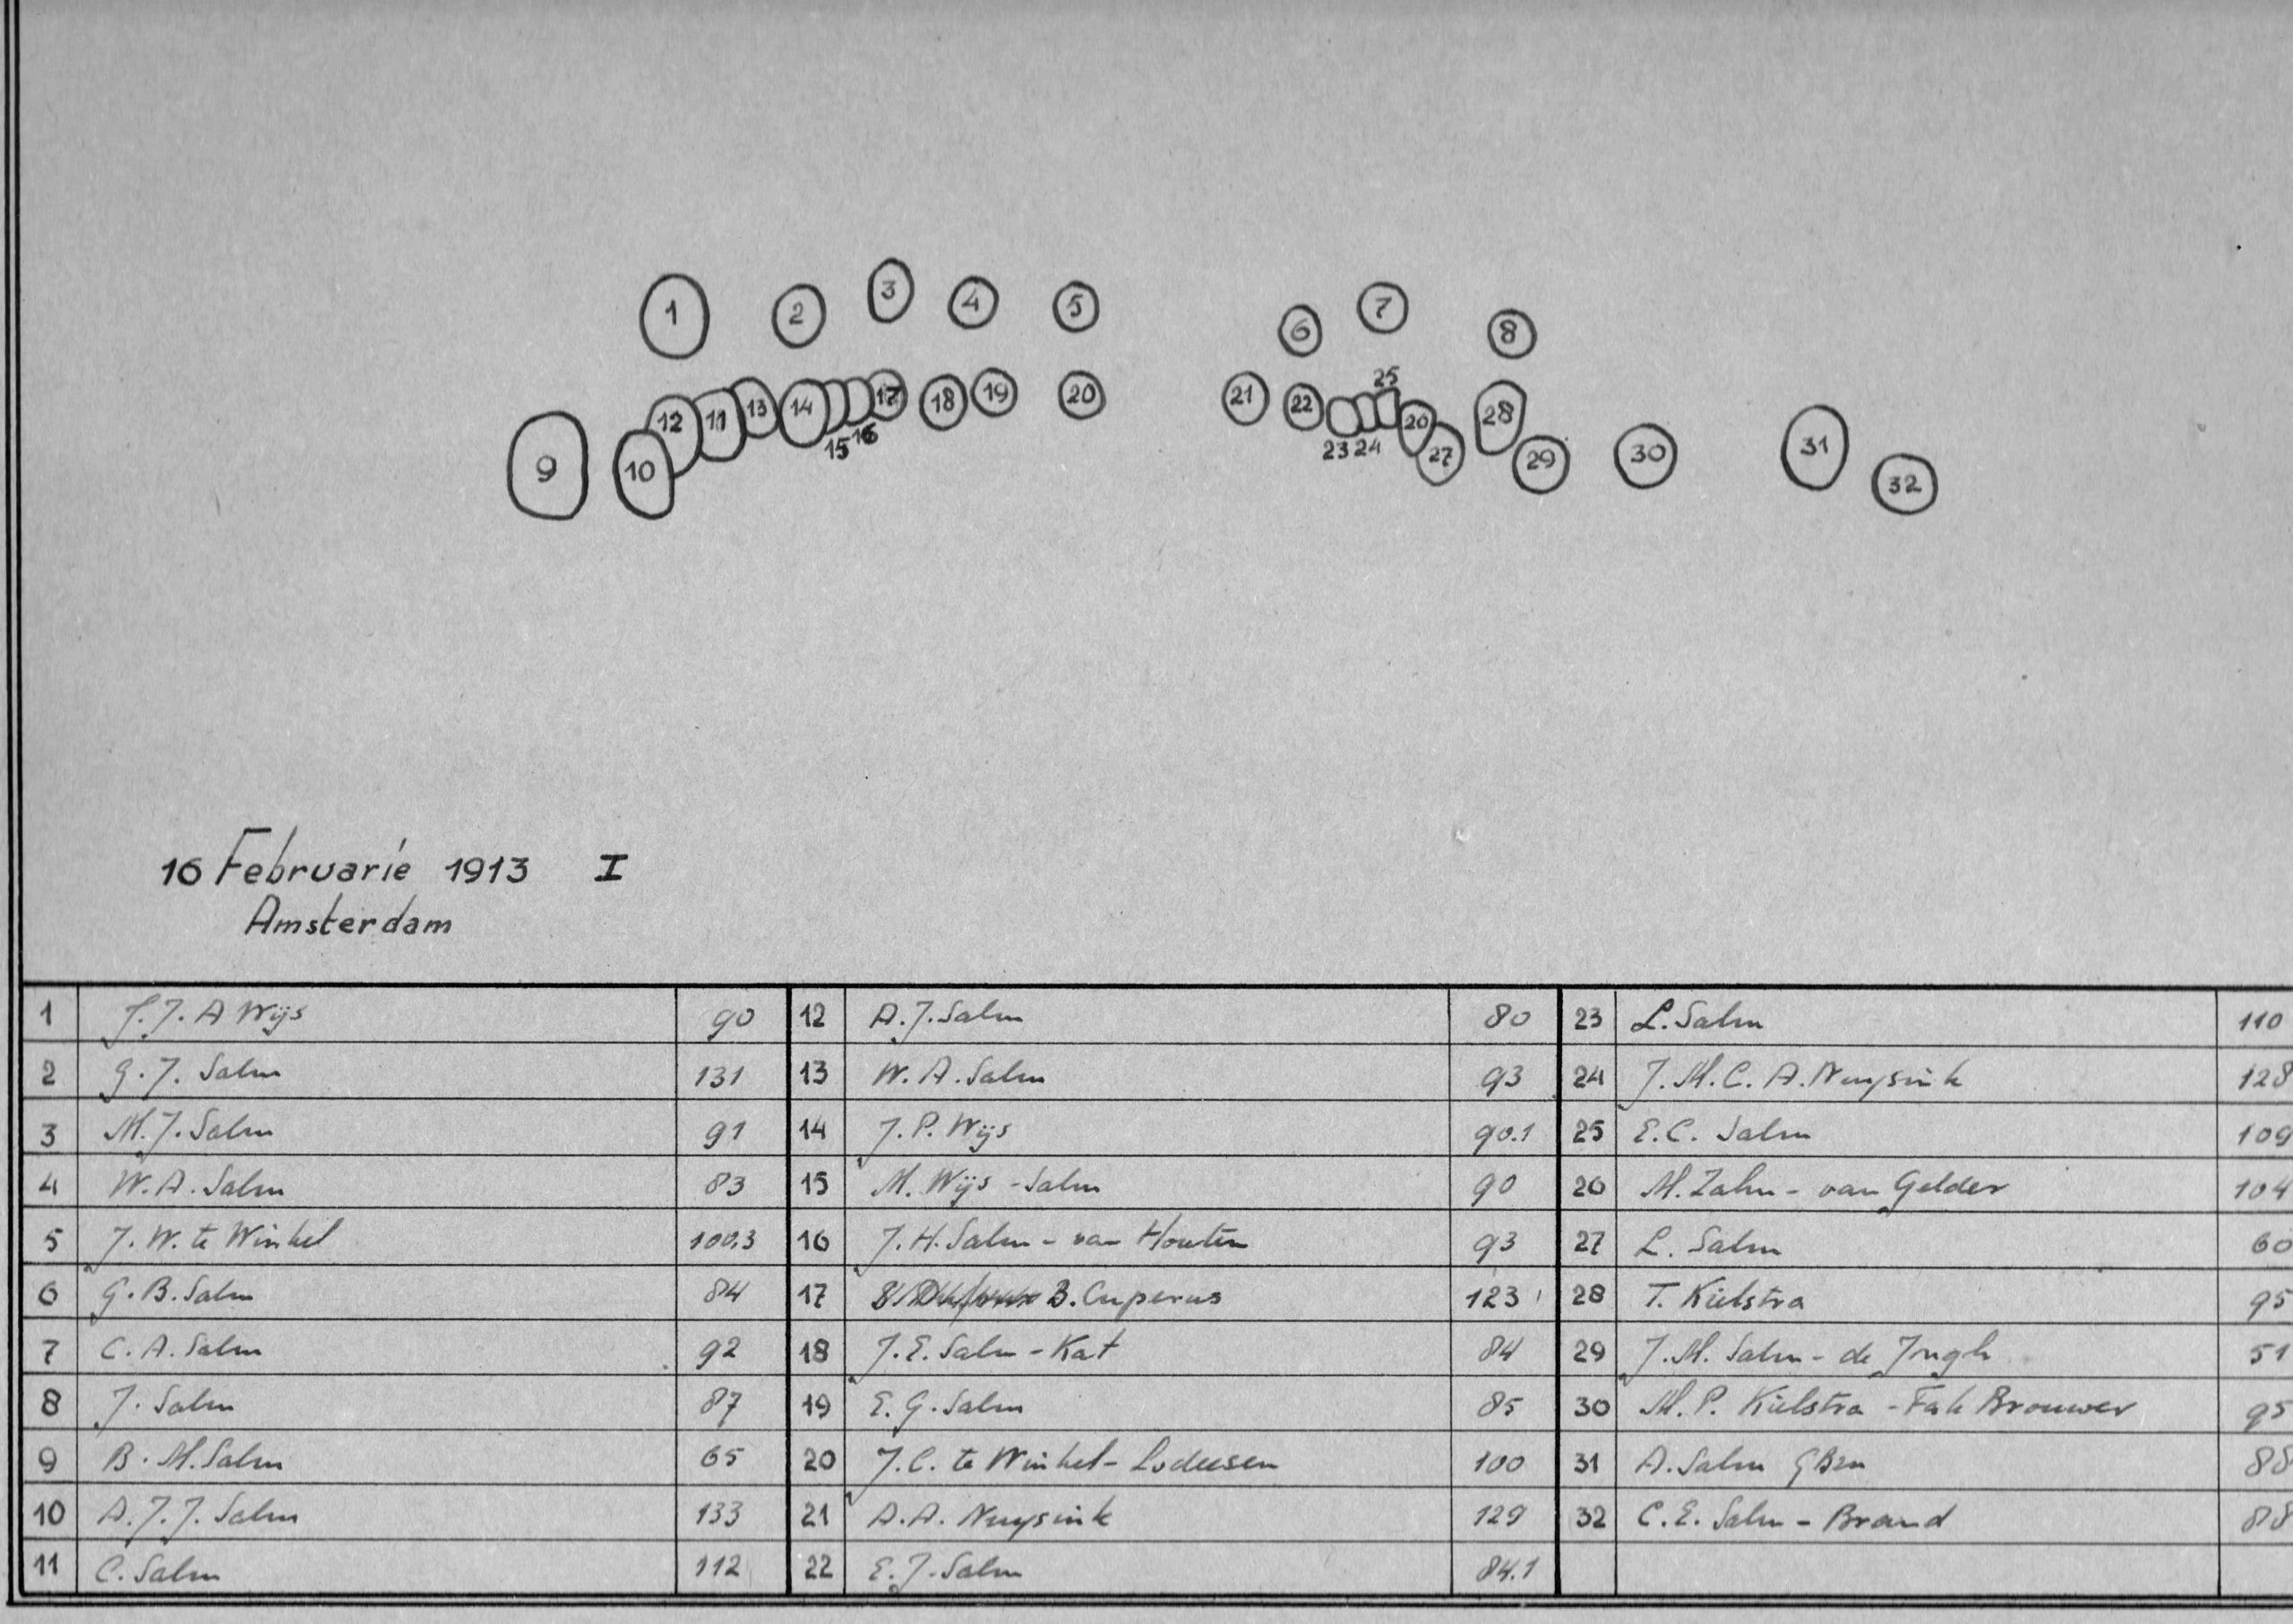 1 2 3 4 5 6 7 8
9 10 12 11 13 14 15 16 17 18 19 20 21 22 23 24 25 26 27 28 29 30 31 32
16 Februarie 1913 I
Amsterdam
1 J.J. A Wijs 90 12 A.J. Salm 80 23 L. Salm 110
2 G.J. Salm 131 13 W.A. Salm 93 24 J.M.C.A. Nuysink 128
3 M.J. Salm 91 14 J.P. Wijs 90.1 25 E.C. Salm 109
4 W.A. Salm 83 15 M. Wijs - Salm 90 26 M. Zalm - van Gelder 104
5 J.W. te Winkel 100.3 16 J.H. Salm - van Houten 93 27 L. Salm 60
6 G.B. Salm 84 17 B. Cuperus 123 28 T. Kielstra 95
7 C.A. Salm 92 18 J.E. Salm - Kat 84 29 J.M. Salm - de Jongh 51
8 J. Salm 87 19 E.G. Salm 85 30 M.P. Kielstra - Fak Brouwer 95
9 B.M. Salm 65 20 J.C. te Winkel - Lodeesen 100 31 A. Salm GBzn 88
10 A.J.J. Salm 133 21 A.A. Nuysink 129 32 C.E. Salm - Brand 88
11 C. Salm 112 22 E.J. Salm 84.1